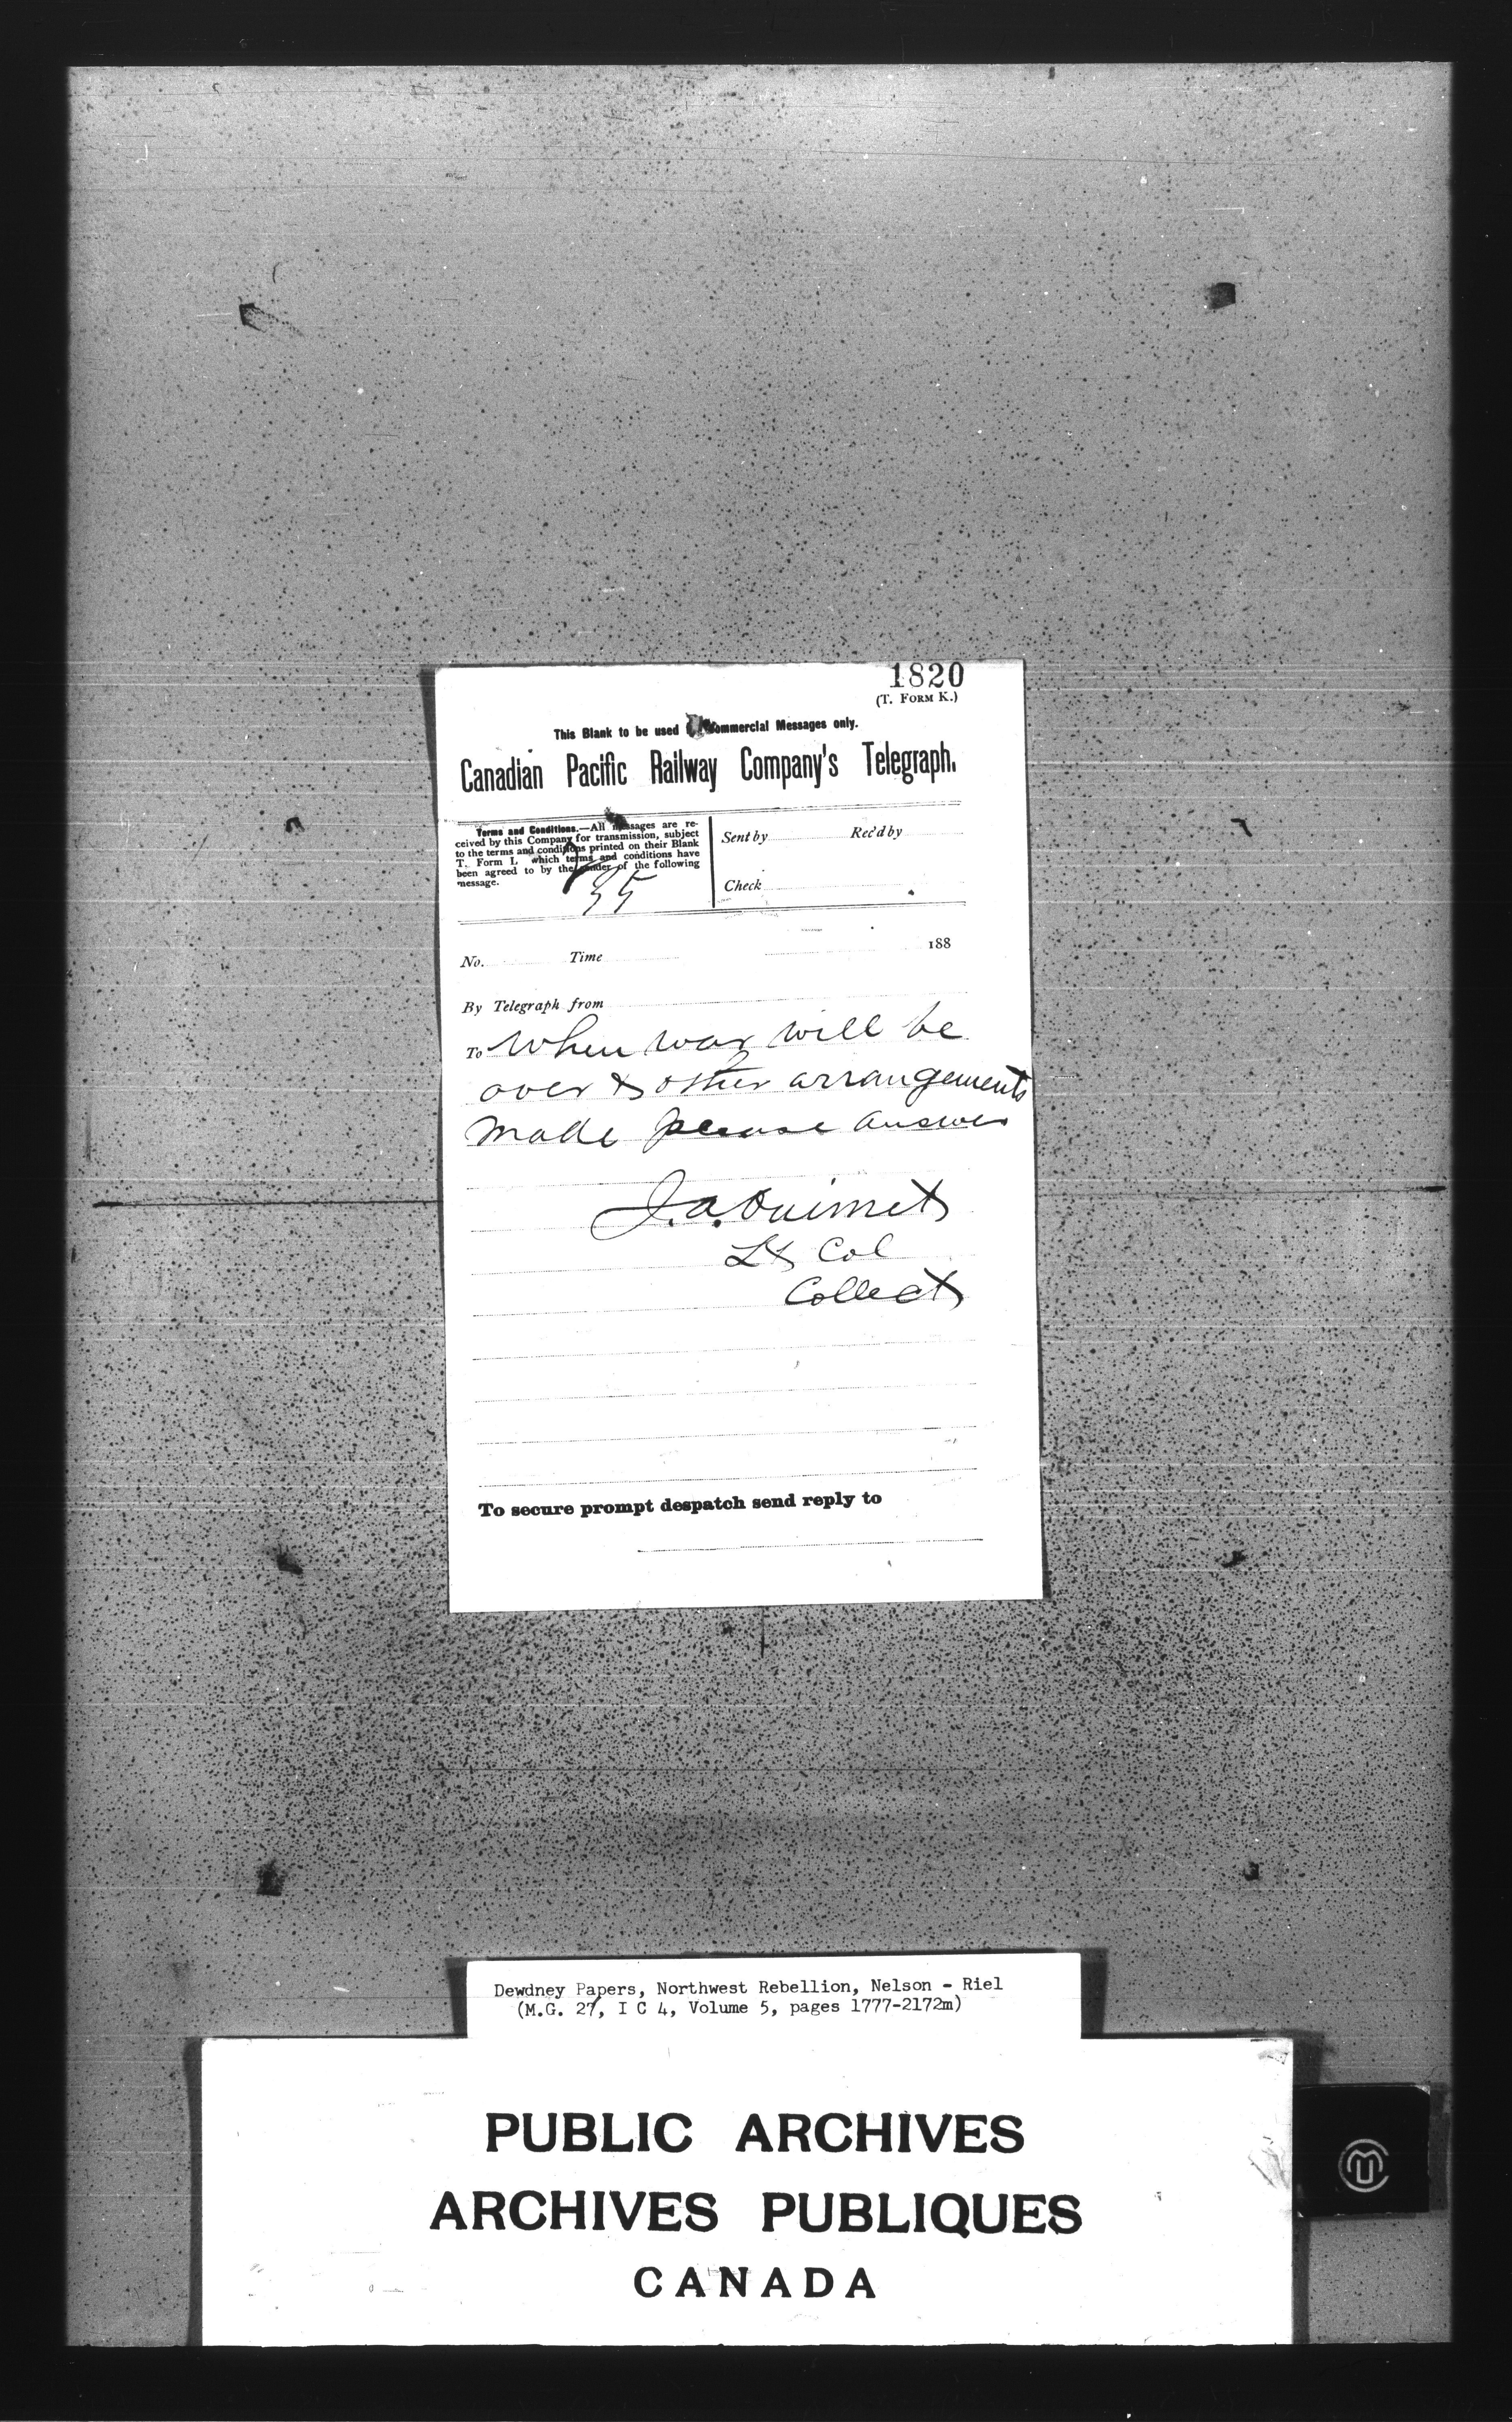 1820
(T. FORM K.)
This Blank to be used Commercial Messages only.
Canadian Pacific Railway Company's Telegraph.
Terms and Conditions.—All messages are re-
ceived by this Company for transmission, subject
to the terms and conditions printed on their Blank
T. Form I, which terms and conditions have
been agreed to by the sender of the following
message.
35
Sent by Rec'd by
Check
No. Time 188
By Telegraph from
To When war will be
over & other arrangements
made please answer
J.A. Ouimet
Lt Col
Collect
To secure prompt despatch send reply to
Dewdney Papers, Northwest Rebellion, Nelson - Riel
(M.G. 27, I C 4, Volume 5, pages 1777-2172m)
PUBLIC ARCHIVES
ARCHIVES PUBLIQUES
CANADA